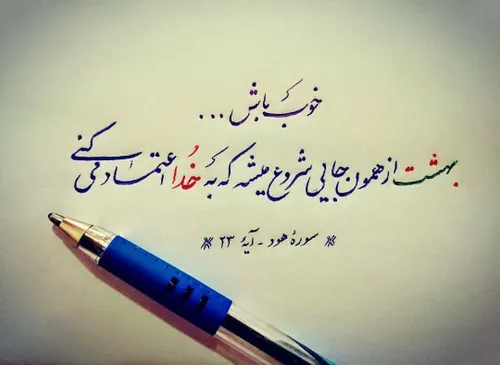 خوب باش ...
بهشت از همون جایی شروع میشه که به خدا اعتماد می کنی
※ سورهٔ هود - آیهٔ ۲۳ ※